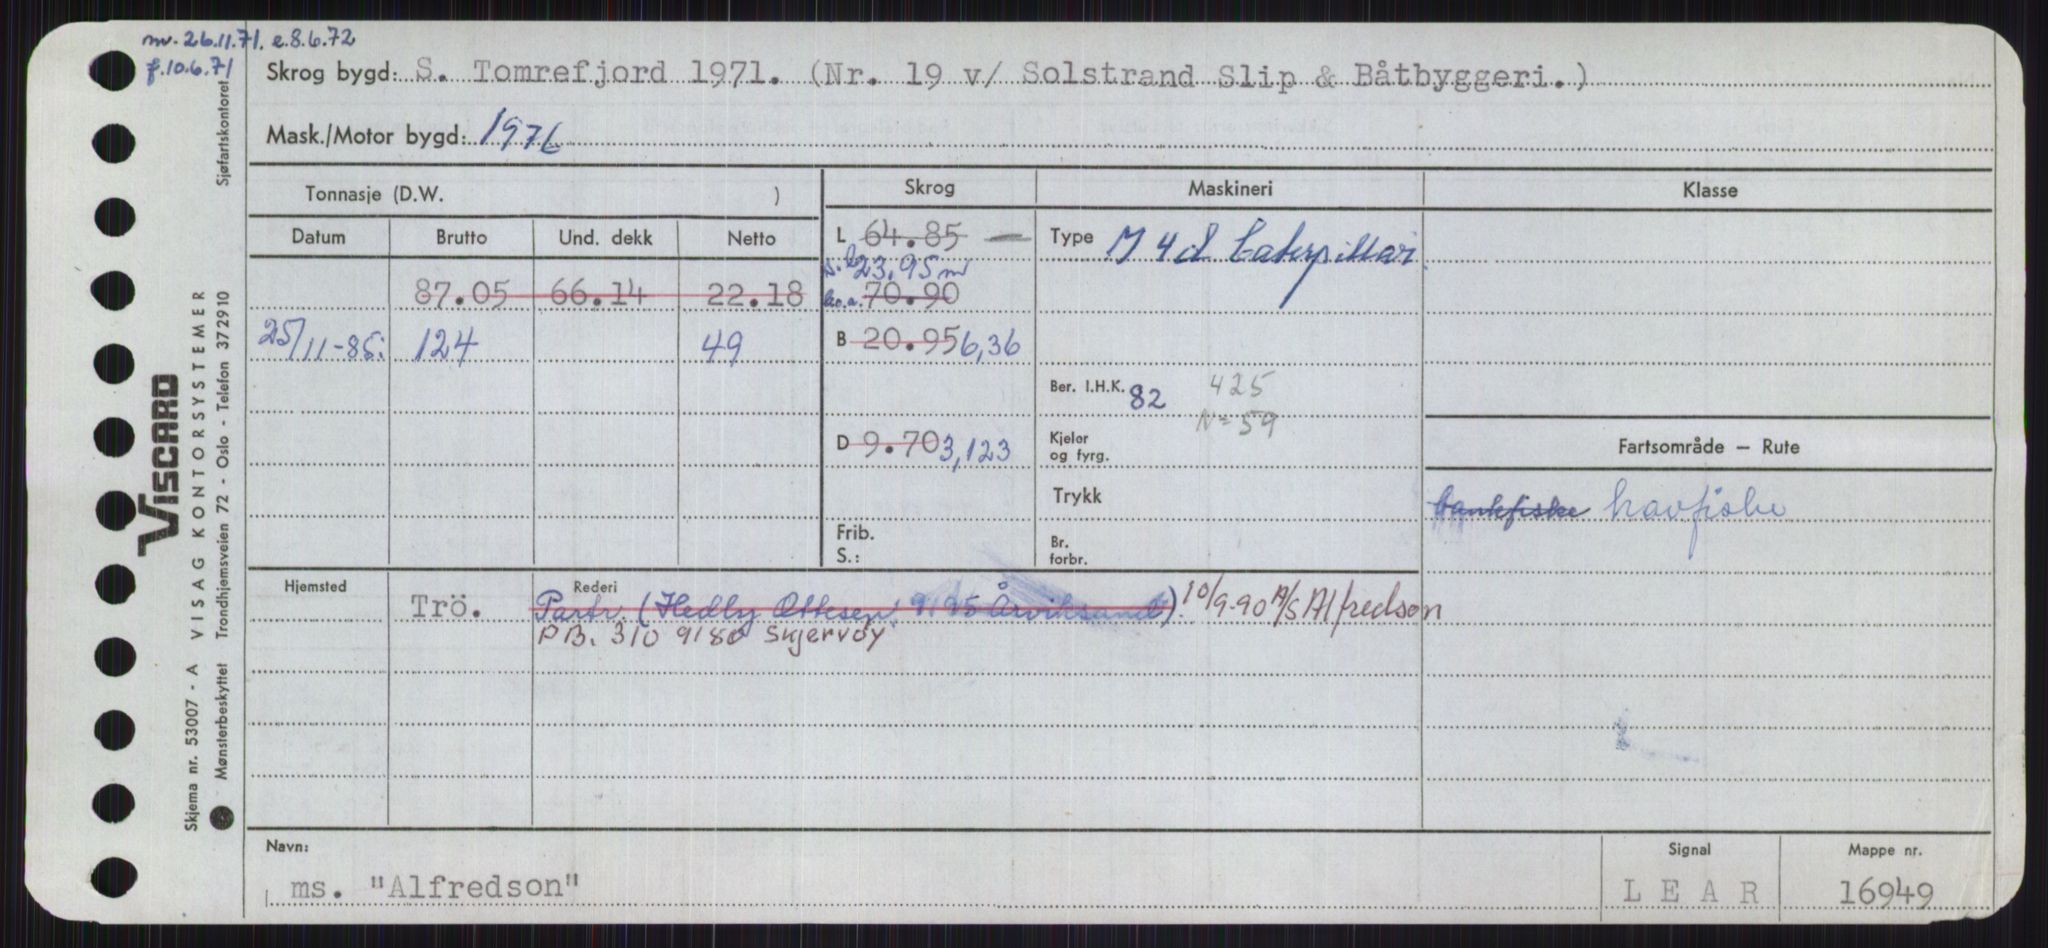 mv. 26.11.71. e.8.6.72
f.10.6.71
Skrog bygd: S. Tomrefjord 1971. (Nr. 19 v/ Solstrand Slip & Båtbyggeri.)
Mask./Motor bygd: 1976
Tonnasje (D.W. ) Skrog Maskineri Klasse
Datum Brutto Und. dekk Netto L 64.85 Type M 4d Caterpillar
23,95 m
87.05 66.14 22.18 l.o.a. 70.90
25/11-85. 124 49 B 20.95 6,36
Ber. I.H.K. 82 425
N=59
D 9.70 3,123 Kjeler og fyrg. Fartsområde — Rute
Trykk bankfiske havfiske
Frib. S.: Br. forbr.
Hjemsted Rederi
Trö. Partr. (Hedly Ottesen, 9195 Årviksand) 10/9-90 A/S Alfredson
PB. 310 9180 Skjervøy
Navn: Signal Mappe nr.
ms. "Alfredson" L E A R 16949
Sjøfartskontoret
VISCARD
VISAG KONTORSYSTEMER
Trondhjemsveien 72 - Oslo - Telefon 372910
Skjema nr. 53007 - A
Mønsterbeskyttet